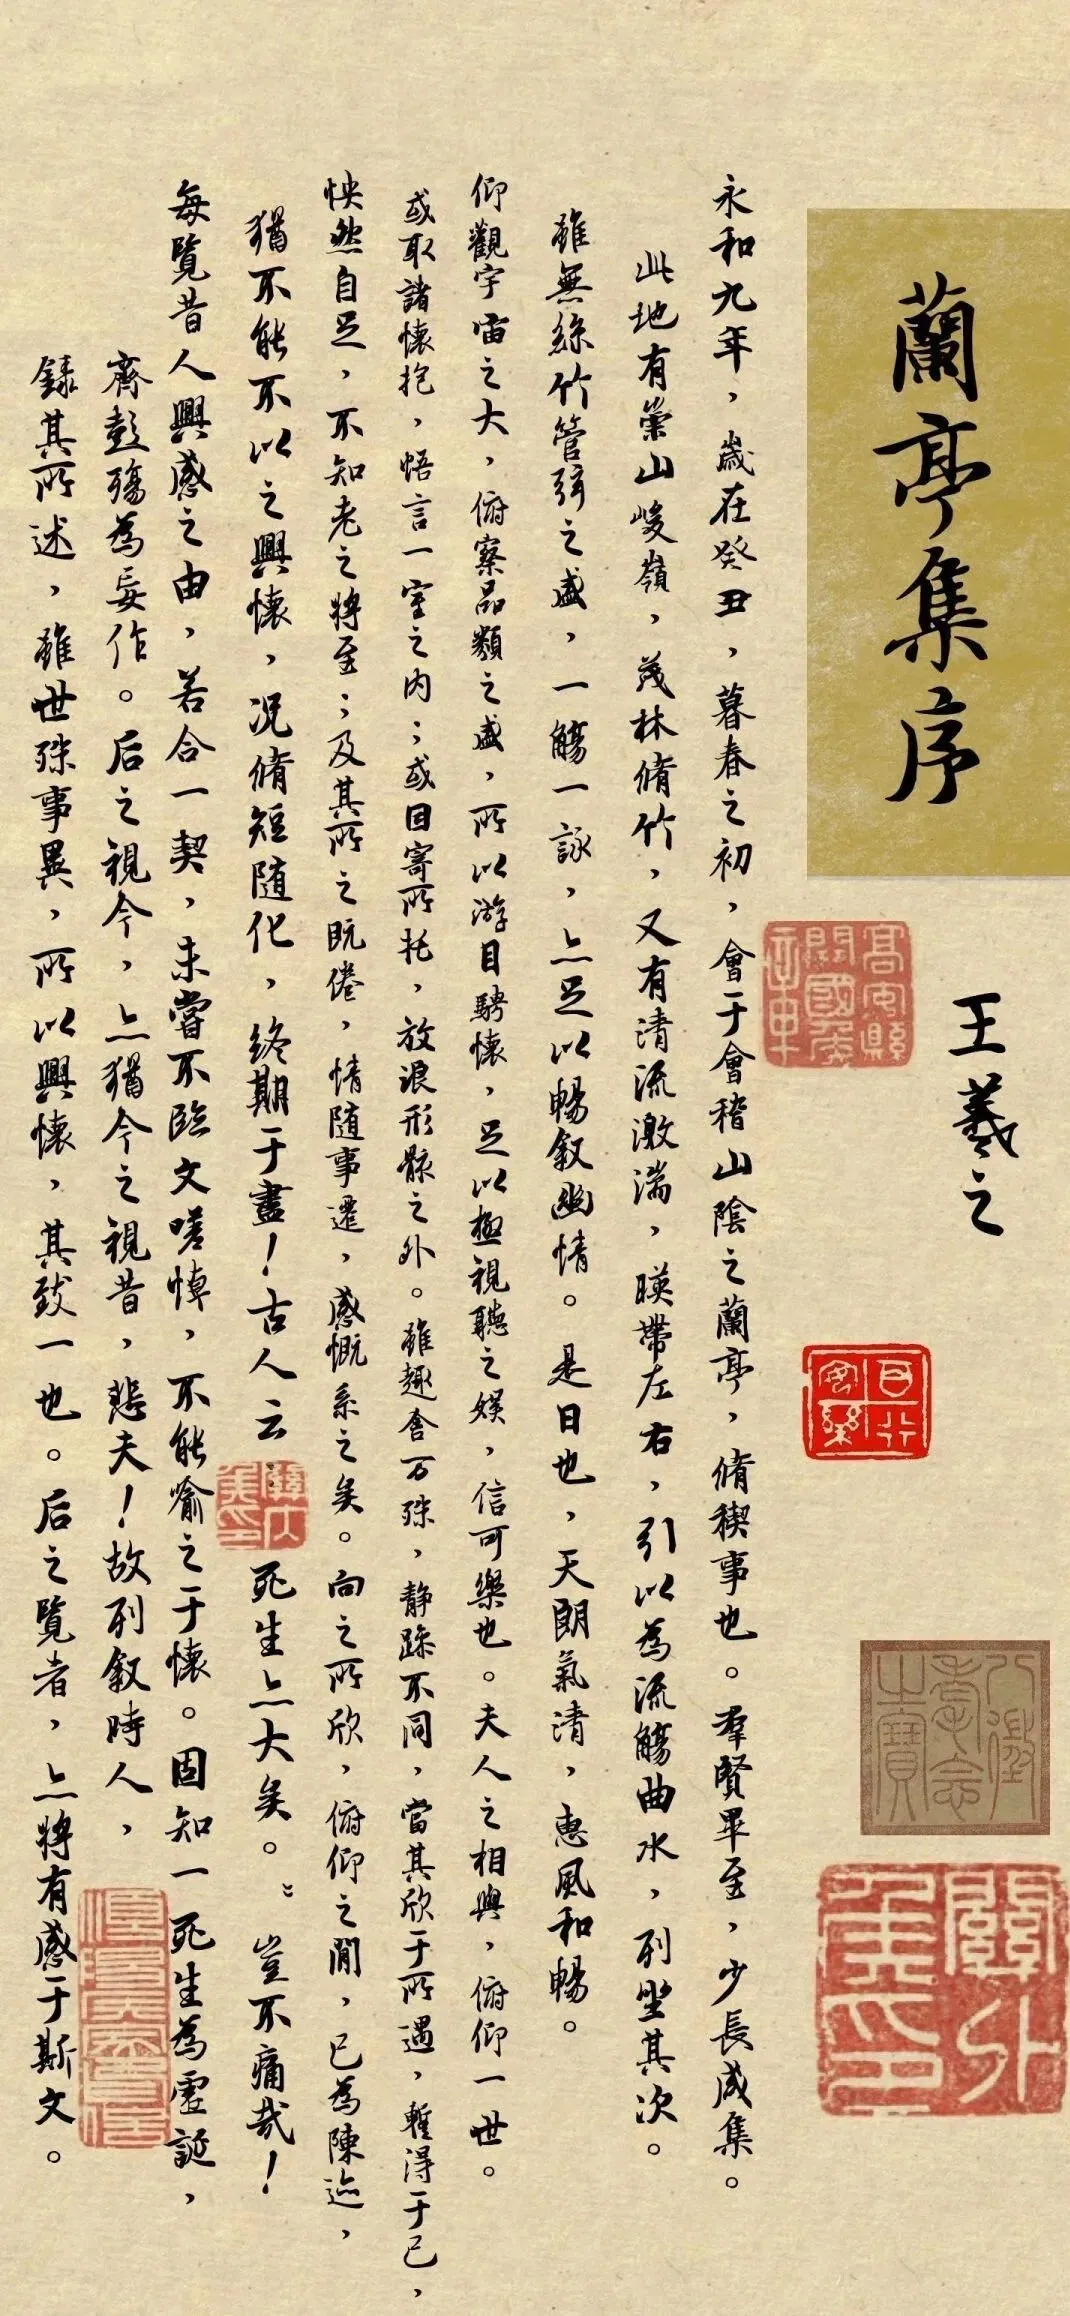 蘭亭集序
王羲之
永和九年，歲在癸丑，暮春之初，會于會稽山陰之蘭亭，脩稧事也。羣賢畢至，少長咸集。
此地有崇山峻嶺，茂林脩竹，又有清流激湍，暎帶左右，引以為流觴曲水，列坐其次。
雖無絲竹管弦之盛，一觴一詠，亦足以暢叙幽情。是日也，天朗氣清，惠風和暢。
仰觀宇宙之大，俯察品類之盛，所以游目騁懷，足以極視聽之娛，信可樂也。夫人之相與，俯仰一世。
或取諸懷抱，悟言一室之内；或因寄所托，放浪形骸之外。雖趣舍万殊，静躁不同，當其欣于所遇，暫得于己，
怏然自足，不知老之將至；及其所之既倦，情隨事遷，感慨系之矣。向之所欣，俯仰之間，已為陳迹，
猶不能不以之興懷，况脩短隨化，終期于盡！古人云：死生亦大矣。豈不痛哉！
每覽昔人興感之由，若合一契，未嘗不臨文嗟悼，不能喻之于懷。固知一死生為虛誕，
齊彭殤為妄作。后之視今，亦猶今之視昔，悲夫！故列叙時人，
録其所述，雖世殊事異，所以興懷，其致一也。后之覽者，亦將有感于斯文。